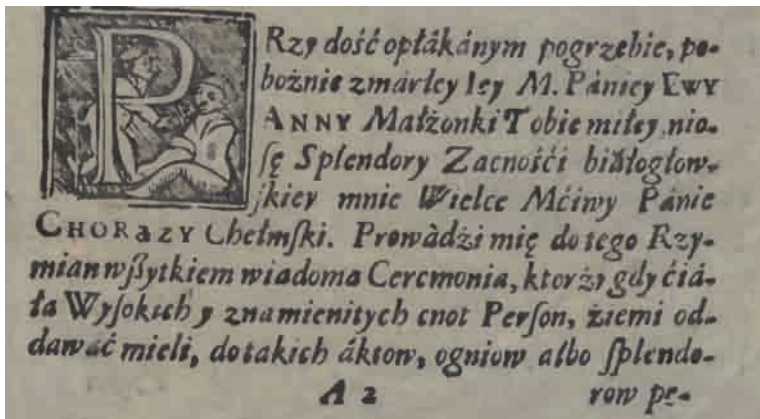 PRzy dość opłákánym pogrzebie, po-
bożnie zmárłey Iey M. Pániey EWY
ANNY Małżonki Tobie miłey, nio-
ſę Splendory Zacnośći biáłogłow-
ſkiey mnie Wielce Mćiwy Pánie
CHORąZY Chełmſki. Prowàdźi mię do tego Rzy-
mian wſzytkiem wiadoma Ceremonia, ktorzy gdy ćiá-
łá Wyſokich y znamienitych cnot Perſon, źiemi od-
dawać mieli, do takich áktow, ogniow albo ſplendo-
A 2 row pe-